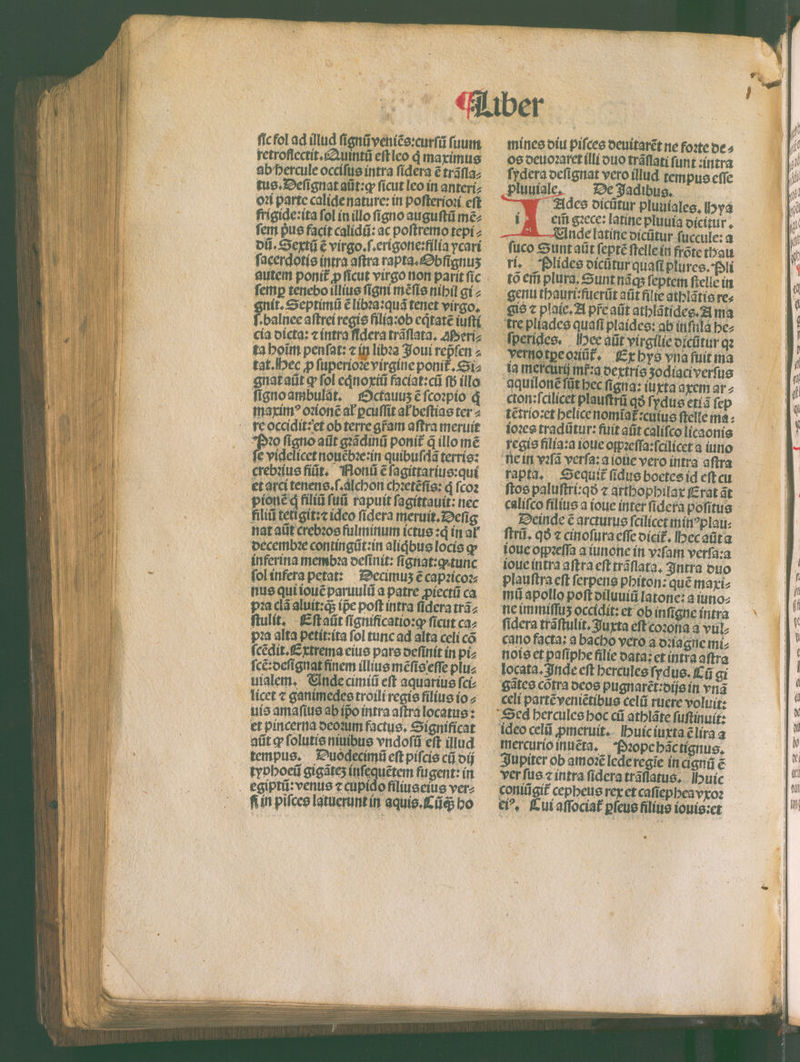 ¶Liber
ſic ſol ad illud ſignũ veniẽs:curſũ ſuum
retroflectit. Quintũ eſt leo q̃ maximus
ab hercule occiſus intra ſidera ẽ trãſla⸗
tus. Deſignat aũt:ꝙ ſicut leo in anteri⸗
ori parte calide nature: in poſteriori eſt
frigide:ita ſol in illo ſigno auguſtũ mẽ⸗
ſem p̃us facit calidũ: ac poſtremo tepi⸗
dũ. Sextũ ẽ virgo.ſ.erigone:filia ycari
ſacerdotis intra aſtra rapta. Obſignus
autem ponit̃ ꝓ ſicut virgo non parit ſic
ſemp tenebo illius ſigni mẽſis nihil gi⸗
gnit. Septimũ ẽ libra:quã tenet virgo.
ſ.balnee aſtrei regis filia:ob eq̃tatẽ iuſti
cia dicta: ⁊ intra ſidera trãſlata. Meri⸗
ta hoĩm penſat: ⁊ in libra Joui rep̃ſen⸗
tat. Hec ꝓ ſuperiore virgine ponit̃. Si⸗
gnat aũt ꝙ ſol eq̃noxiũ faciat:cũ ſb illo
ſigno ambulat. Octauuȝ ẽ ſcorpio q̃
maximꝰ orionẽ al̃ ꝑcuſſit al̃ beſtias ter⸗
re occidit:et ob terre gr̃am aſtra meruit
Pro ſigno aũt grãdinũ ponit̃ q̃ illo mẽ
ſe videlicet nouẽbre:in quibuſdã terris:
crebrius fiũt. Nonũ ẽ ſagittarius:qui
et arci tenens.ſ.alchon chretẽſis: q̃ ſcor
pionẽ q̃ filiũ ſuũ rapuit ſagittauit: nec
filiũ tetigit:⁊ ideo ſidera meruit. Deſig
nat aũt crebros fulminum ictus :q̃ in al̃
decembre contingũt:in aliq̃bus locis ꝙ
inferina membra deſinit: ſignat:ꝙ tunc
ſol infera petat: Decimuȝ ẽ capricor⸗
nus qui iouẽ paruulũ a patre ꝓiectũ ca
pra clã aluit:q̃ȝ ip̃e poſt intra ſidera trã⸗
ſtulit. Eſt aũt ſignificatio:ꝙ ſicut ca⸗
pra alta petit:ita ſol tunc ad alta celi cõ
ſcẽdit. Extrema eius pars deſinit in pi⸗
ſcẽ:deſignat finem illius mẽſis eſſe plu⸗
uialem. Unde cimiũ eſt aquarius ſci⸗
licet ⁊ ganimedes troili regis filius io⸗
uis amaſius ab ip̃o intra aſtra locatus:
et pincerna deorum factus. Significat
aũt ꝙ ſolutis niuibus vndoſũ eſt illud
tempus. Duodecimũ eſt piſcis cũ dij
typhoeũ gigãteȝ inſequẽtem fugent: in
egiptũ: venus ⁊ cupido filius eius ver⸗
ſi in piſces latuerunt in aquis. Cũq̃ȝ ho
mines diu piſces deuitarẽt ne forte de⸗
os deuoraret illi duo trãſlati ſunt :intra
ſydera deſignat vero illud tempus eſſe
pluuiale. De Jadibus.
IAdes dicũtur pluuiales. Hya
i em̃ grece: latine pluuia dicitur.
Unde latine dicũtur ſuccule: a
ſuco Sunt aũt ſeptẽ ſtelle in frõte thau
ri. Plides dicũtur quaſi plures. Pli
tõ em̃ plura. Sunt nãqȝ ſeptem ſtelle in
genu thauri:fuerũt aũt filie athlãtis re⸗
gis ⁊ plaie. A pr̃e aũt athlãtides. A ma
tre pliades quaſi plaides: ab inſula he⸗
ſperides. Hee aũt virgilie dicũtur qꝛ
verno tꝑe oriũt̃. Ex hys vna fuit ma
ia mercurij mr̃:a dextris ȝodiaci verſus
aquilonẽ ſũt hec ſigna: iuxta axem ar⸗
cton:ſcilicet plauſtrũ qđ ſydus etiã ſep
tẽtrio:et helice nomĩat̃:cuius ſtelle ma⸗
iores tradũtur: fuit aũt caliſco licaonis
regis filia:a ioue oppreſſa:ſcilicet a iuno
ne in vrſã verſa: a ioue vero intra aſtra
rapta. Sequit̃ ſidus boetes id eſt cu
ſtos paluſtri:qđ ⁊ arthophilax Erat ãt
caliſco filius a ioue inter ſidera poſitus
Deinde ẽ arcturus ſcilicet minꝰ plau⸗
ſtrũ. qđ ⁊ cinoſura eſſe dicit̃. Hec aũt a
ioue oppreſſa a iunone in vrſam verſa:a
ioue intra aſtra eſt trãſlata. Intra duo
plauſtra eſt ſerpens phiton: quẽ maxi⸗
mũ apollo poſt diluuiũ latone: a iuno⸗
ne immiſſuȝ occidit: et ob inſigne intra
ſidera trãſtulit. Juxta eſt corona a vul⸗
cano facta: a bacho vero a driagne mi⸗
nois et paſiphe filie data: et intra aſtra
locata. Inde eſt hercules ſydus. Cũ gi
gãtes cõtra deos pugnarẽt:dijs in vnã
celi partẽ veniẽtibus celũ ruere voluit:
Sed hercules hoc cũ athlãte ſuſtinuit:
ideo celũ ꝓmeruit. Huic iuxta ẽ lira a
mercurio inuẽta. Prope hãc tignus.
Jupiter ob amorẽ lede regie in cignũ ẽ
verſus ⁊ intra ſidera trãſlatus. Huic
coniũgit̃ cepheus rex et caſiephea vxor
eiꝰ. Cui aſſociat̃ ꝑſeus filius iouis:et